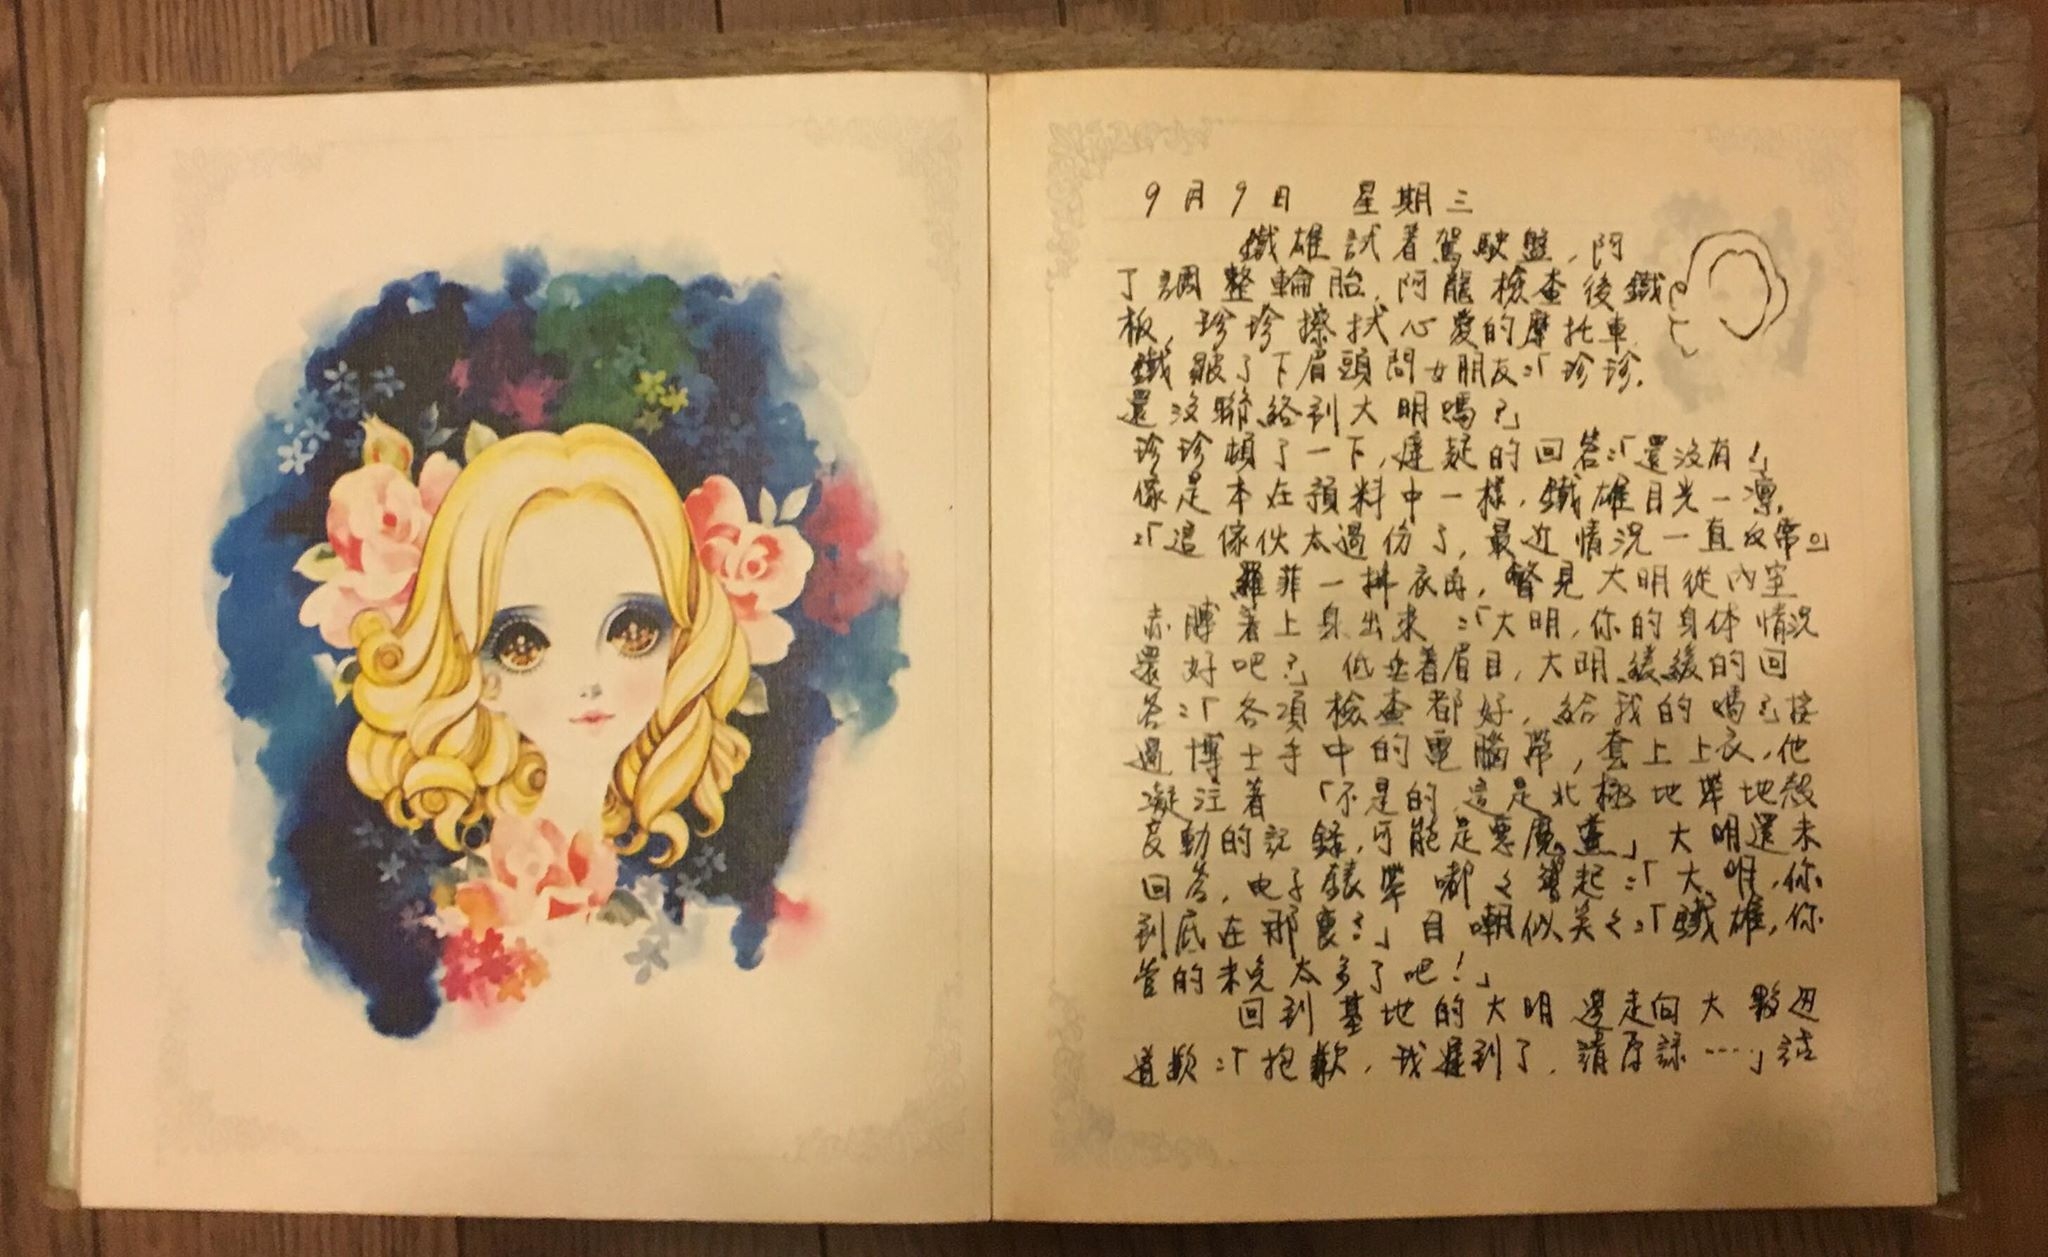 9月9日 星期三
鐵雄試着駕駛盤,阿
丁調整輪胎,阿龍檢查後鐵
板,珍珍擦拭心愛的摩托車.
鐵皺了下眉頭問女朋友:「珍珍,
還沒聯絡到大明嗎?」
珍珍頓了一下,遲疑的回答:「還沒有!」
像是本在預料中一樣,鐵雄目光一凜,
:「這傢伙太過份了,最近情況一直反常。」
羅菲一拂衣角,瞥見大明從內室
赤膊着上身出來:「大明,你的身体情況
還好吧?」低垂着眉目,大明緩緩的回
答:「各項檢查都好,給我的嗎?」接
過博士手中的電腦帶,套上上衣,他
凝注着「不是的,這是北極地帶地殼
反動的記錄,可能是惡魔黨」大明還未
回答,电子錶帶嘟々響起:「大明,你
到底在那裏?」自嘲似笑々:「鐵雄,你
管的未免太多了吧!」
回到基地的大明邊走向大夥边
道歉:「抱歉,我遲到了,請原諒……」話